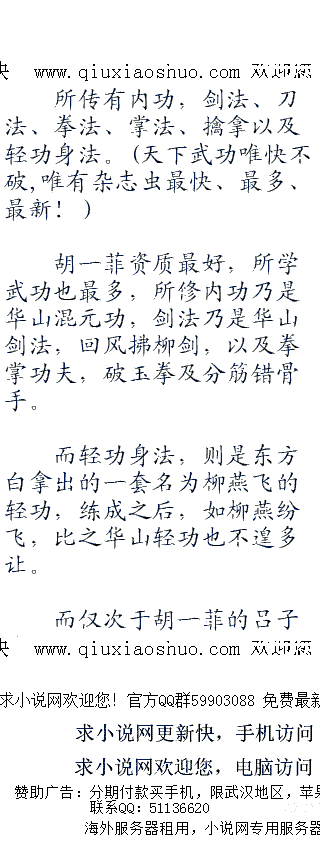 快 www.qiuxiaoshuo.com 欢迎您
所传有内功，剑法、刀
法、拳法、掌法、擒拿以及
轻功身法。(天下武功唯快不
破,唯有杂志虫最快、最多、
最新！)
胡一菲资质最好，所学
武功也最多，所修内功乃是
华山混元功，剑法乃是华山
剑法，回风拂柳剑，以及拳
掌功夫，破玉拳及分筋错骨
手。
而轻功身法，则是东方
白拿出的一套名为柳燕飞的
轻功，练成之后，如柳燕纷
飞，比之华山轻功也不遑多
让。
而仅次于胡一菲的吕子
快 www.qiuxiaoshuo.com 欢迎您
求小说网欢迎您！官方QQ群59903088 免费最新
求小说网更新快，手机访问
求小说网欢迎您，电脑访问
赞助广告：分期付款买手机，限武汉地区，苹果
联系QQ：51136620
海外服务器租用，小说网专用服务器